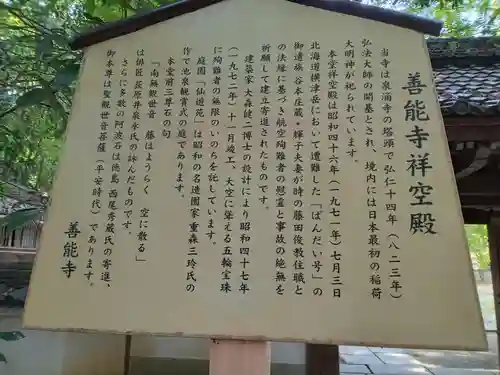 善能寺祥空殿
当寺は泉涌寺の塔頭で弘仁十四年（八二三年）
弘法大師の開基とされ、境内には日本最初の稲荷
大明神が祀られています。
本堂祥空殿は昭和四十六年（一九七一年）七月三日
北海道横津岳において遭難した「ばんだい号」の
御遺族谷本庄蔵・輝子夫妻が時の藤田俊教住職と
の法縁に基づき航空殉難者の慰霊と事故の絶無を
祈願して建立寄進されたものです。
建築家大森健二博士の設計により昭和四十七年
（一九七二年）十一月竣工、大空に聳える五輪宝珠
に殉難者の無限のいのちを托しています。
庭園「仙遊苑」は昭和の名造園家重森三玲氏の
作で池泉観賞式の庭であります。
本堂前三尊石の句
「南無観世音　藤はようらく　空に散る」
は俳匠荻原井泉水氏の詠んだものです。
さらに多数の阿波石は徳島　西尾秀蔵氏の寄進、
御本尊は聖観世音菩薩（平安時代）であります。
善能寺